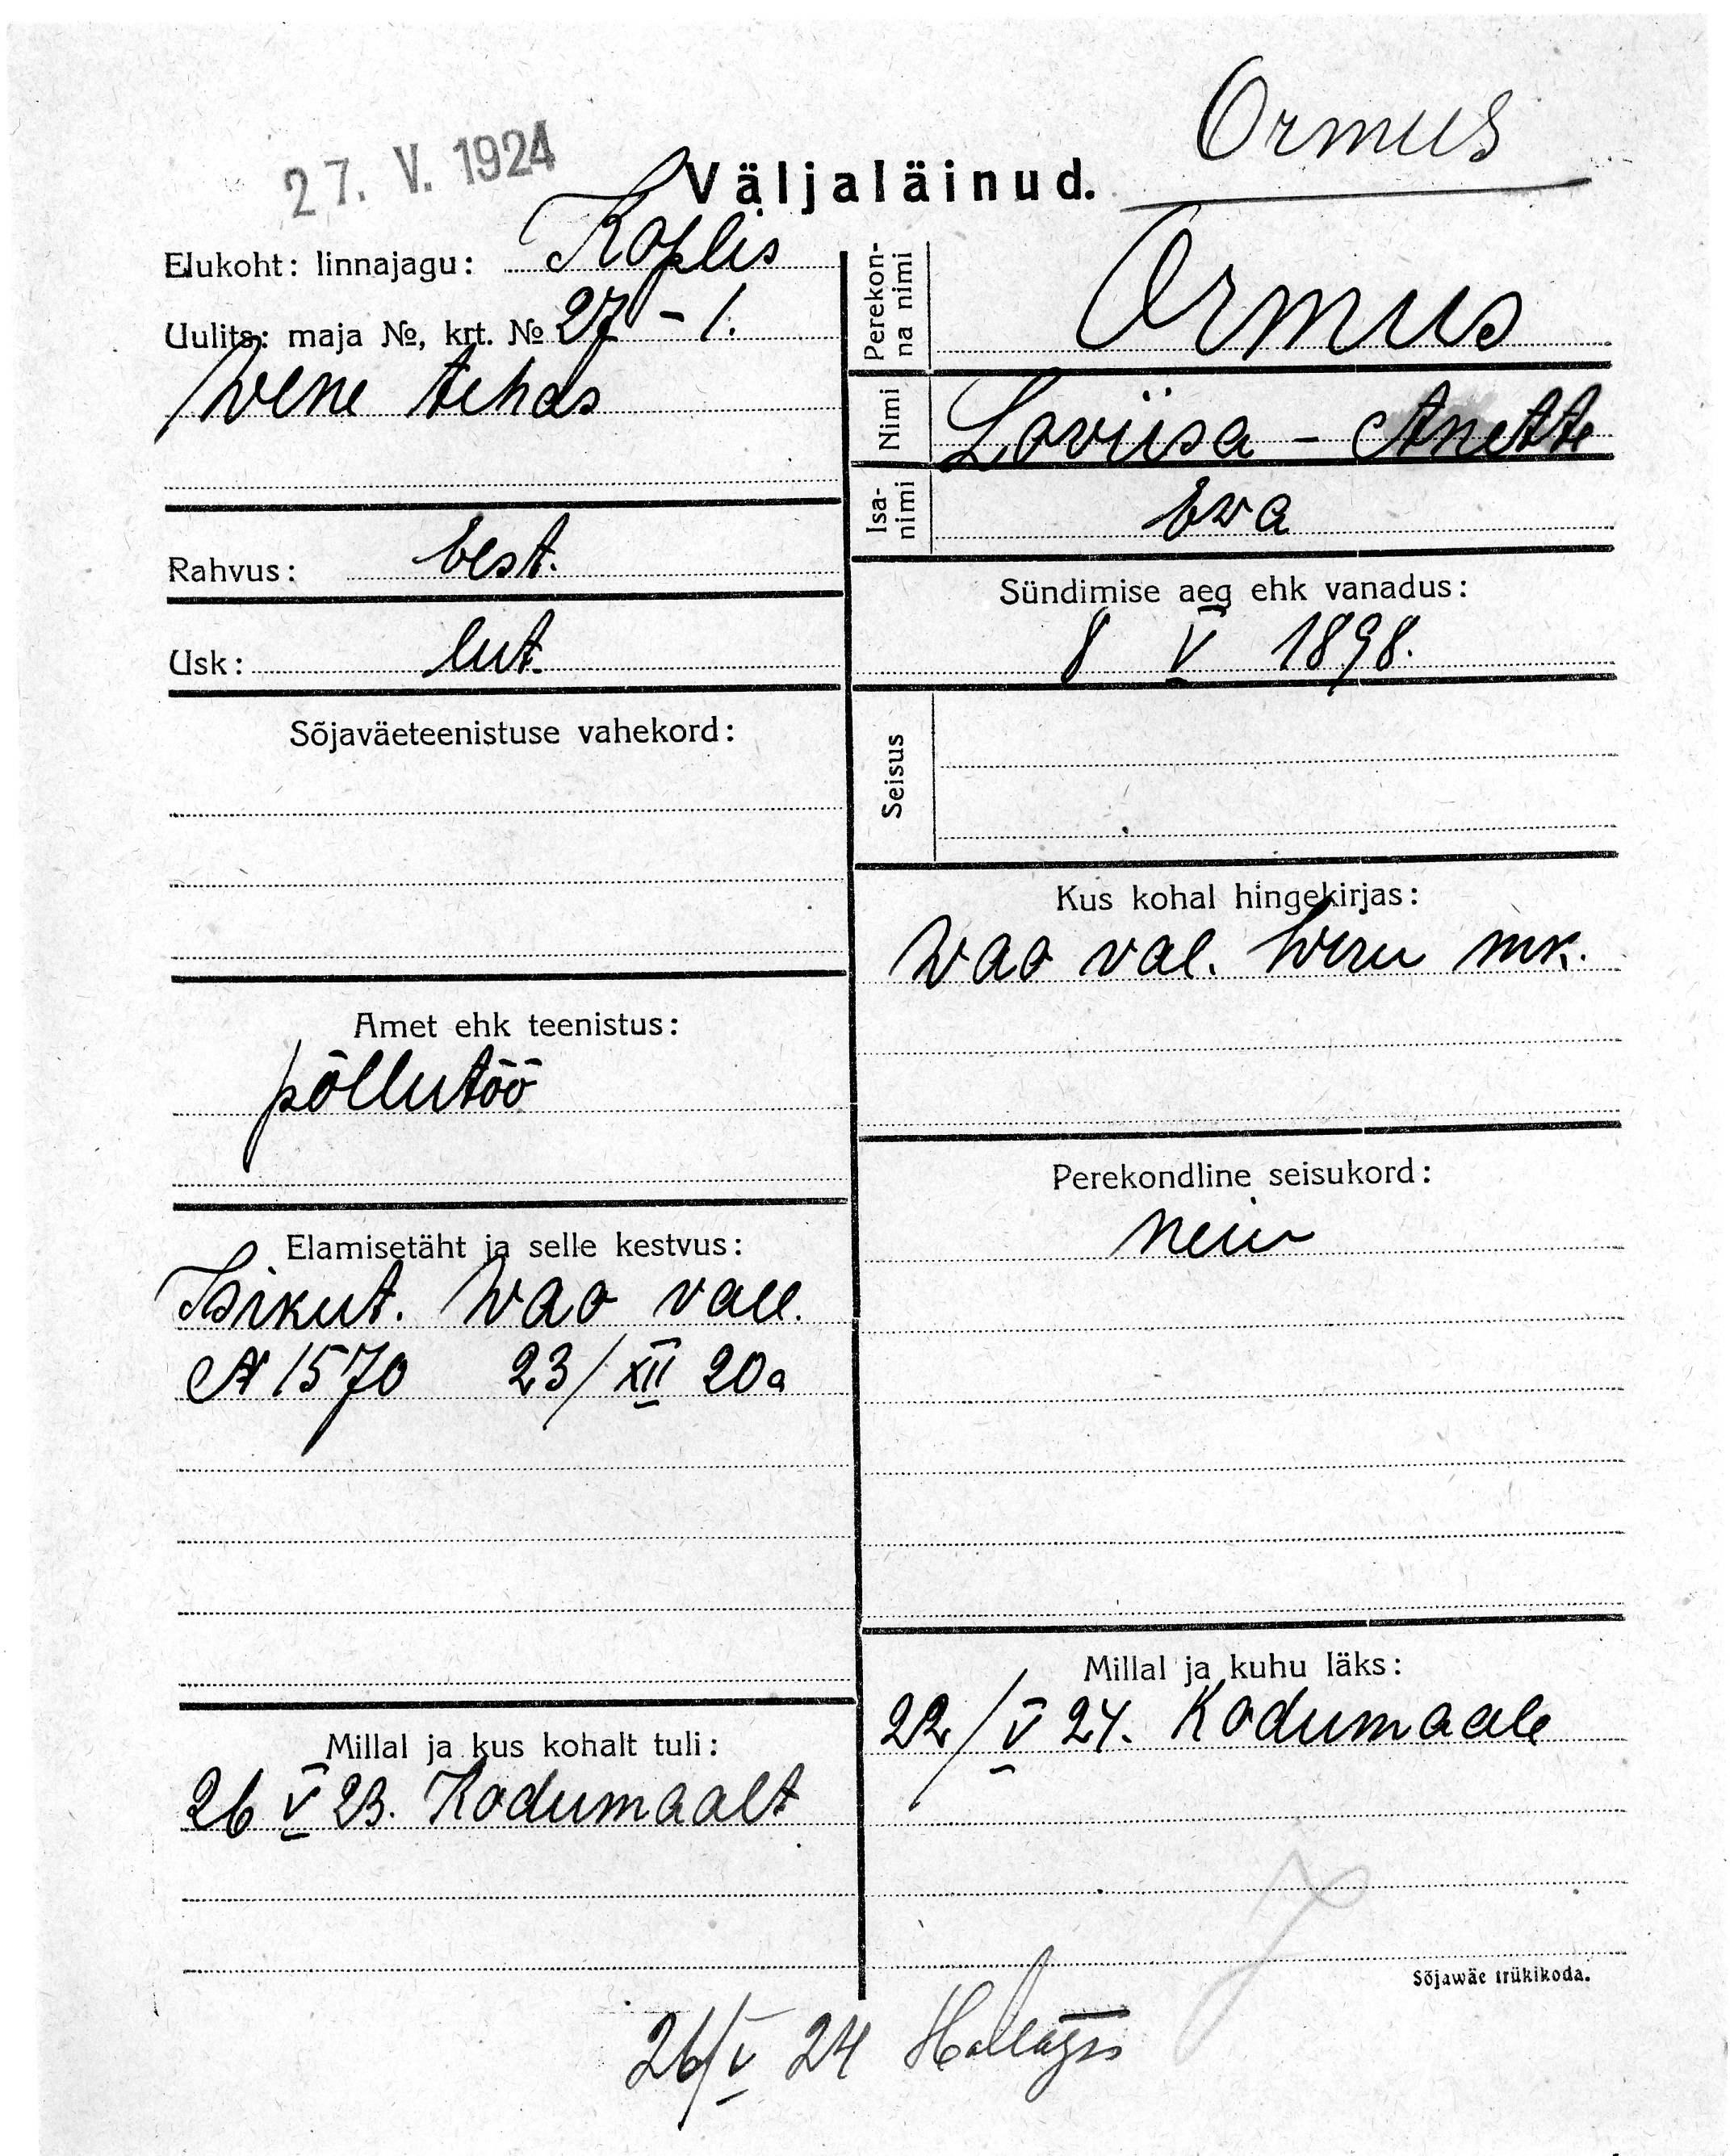 Ormus
27. V. 1924
Väljaläinud.
Elukoht: linnajagu: Koplis
Uulits: maja №, krt. № 27 - 1.
Wene tehas
Rahvus: eest.
Usk: lut.
Sõjaväeteenistuse vahekord:
Amet ehk teenistus:
põllutöö
Elamisetäht ja selle kestvus:
Isikut. Wao vall.
N 1570 23/XII 20a
Millal ja kus kohalt tuli:
26 V 23. Kodumaalt
Perekon-
na nimi
Ormus
Nimi
Loviisa - Anette
Isa-
nimi
Ewa
Sündimise aeg ehk vanadus:
8 V 1898.
Seisus
Kus kohal hingekirjas:
Wao val. Wiru mk.
Perekondline seisukord:
neiu
Millal ja kuhu läks:
22/V 24. Kodumaale
Sõjawäe trükikoda.
26/V 24